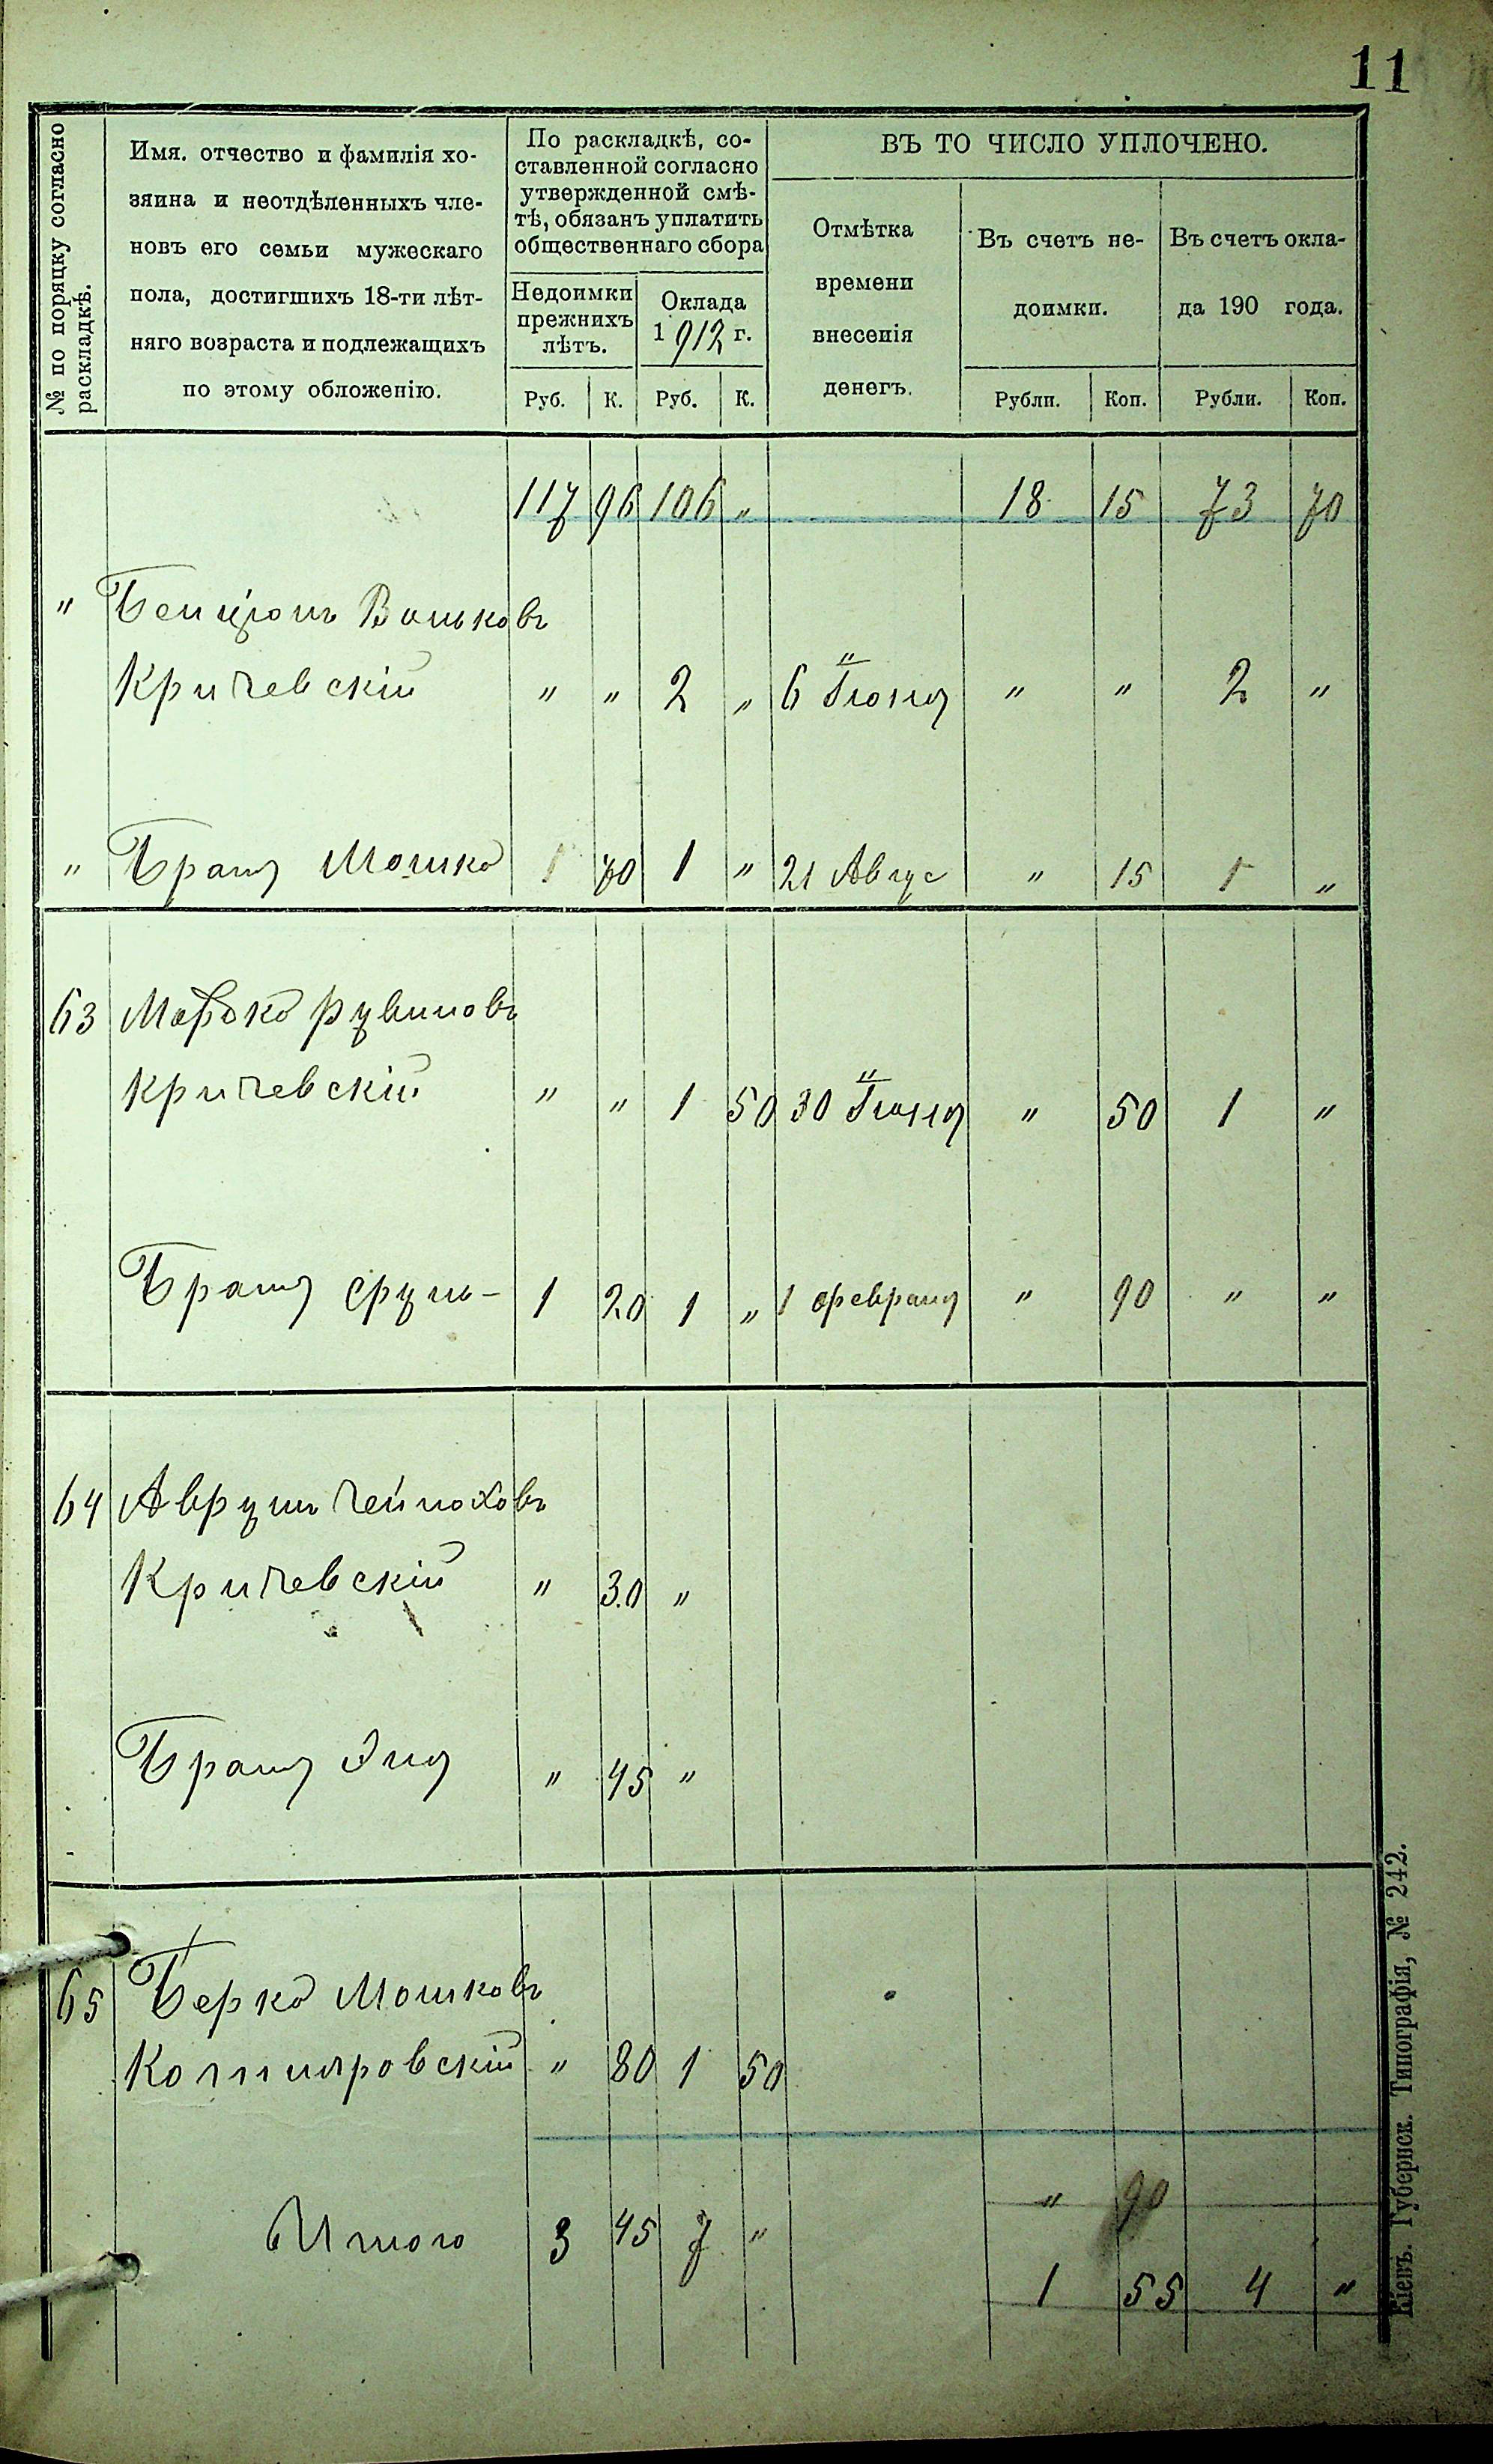 11
№ по порядку согласно
раскладкѣ.
Имя. отчество и фамилія хо-
зяина и неотдѣленныхъ чле-
новъ его семьи мужескаго
пола, достигшихъ 18-ти лѣт-
няго возраста и подлежащихъ
по этому обложенію.
По раскладкѣ, со-
ставленной согласно
утвержденной смѣ-
тѣ, обязанъ уплатить
общественнаго сбора
Недоимки
прежнихъ
лѣтъ.
Оклада
1912 г.
ВЪ ТО ЧИСЛО УПЛОЧЕНО.
Отмѣтка
времени
внесенія
денегъ.
Въ счетъ не-
доимки.
Въ счетъ окла-
да 190 года.
Руб. К. Руб. К. Рубли. Коп. Рубли. Коп.
117 96 106 " 18 15 73 70
" Бенціонъ Вольковъ
Кричевскій " " 2 " 6 Іюня " " 2 "
" Братъ Мошко 1 70 1 " 21 Авгус " 15 1 "
63 Мордко Рувиновъ
Кричевскій " " 1 50 30 Іюня " 50 1 "
Братъ Сруль - 1 20 1 " 1 февраля " 90 " "
64 Аврумъ Гейноховъ
Кричевскій " 30 "
Братъ Эля " 45 "
65 Берко Мошковъ
" 80 1 50
" 90
Итого 3 45 7 "
1 55 4 "
Кіевъ. Губернск. Типографія, № 242.